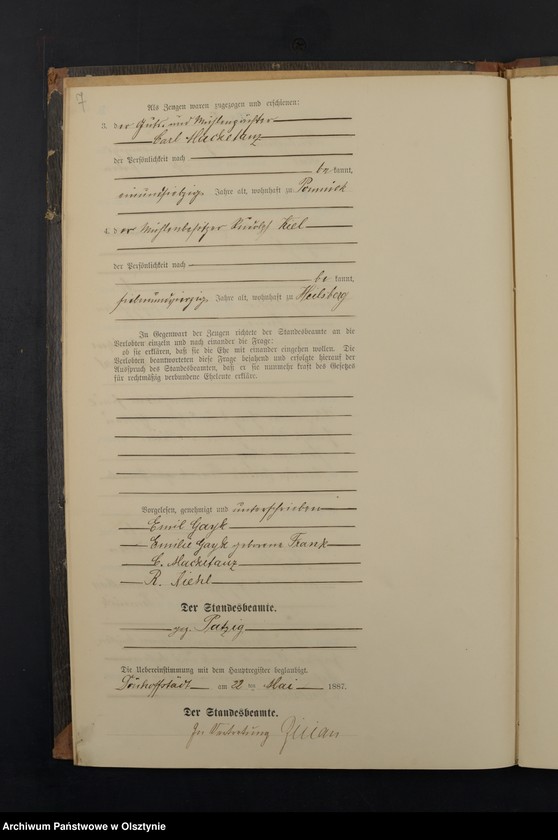 7
Als Zeugen waren zugezogen und erschienen:
3. der Guts- und Mühlenpächter
Carl Macketanz
der Persönlichkeit nach
be kannt,
einundsiebzig Jahre alt, wohnhaft zu
4. der Mühlenbesitzer Rudolf
der Persönlichkeit nach
be kannt,
siebenundvierzig Jahre alt, wohnhaft zu Heilsberg
In Gegenwart der Zeugen richtete der Standesbeamte an die
Verlobten einzeln und nach einander die Frage:
ob sie erklären, daß sie die Ehe mit einander eingehen wollen. Die
Verlobten beantworteten diese Frage bejahend und erfolgte hierauf der
Ausspruch des Standesbeamten, daß er sie nunmehr kraft des Gesetzes
für rechtmäßig verbundene Eheleute erkläre.
Vorgelesen, genehmigt und unterschrieben
Emil Gayk
Emilie Gayk geborene Frank
C. Macketanz
R.
Der Standesbeamte.
gez. Patzig
Die Uebereinstimmung mit dem Hauptregister beglaubigt.
Dönhoffstädt am 22 ten Mai 1887.
Der Standesbeamte.
In Vertretung
Archiwum Państwowe w Olsztynie